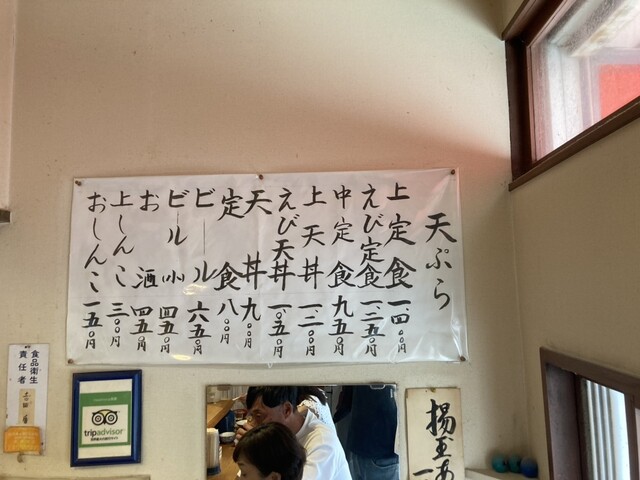 天ぷら
上定食 一、四〇〇円
えび定食 一、二五〇円
中定食 九五〇円
上天丼 一、二〇〇円
えび天丼 一、〇五〇円
天丼 九〇〇円
定食 八〇〇円
ビール 六五〇円
ビール小 四五〇円
お酒 四五〇円
上しんこ 三〇〇円
おしんこ 一五〇円
食品衛生
責任者
tripadvisor
揚玉あ
一